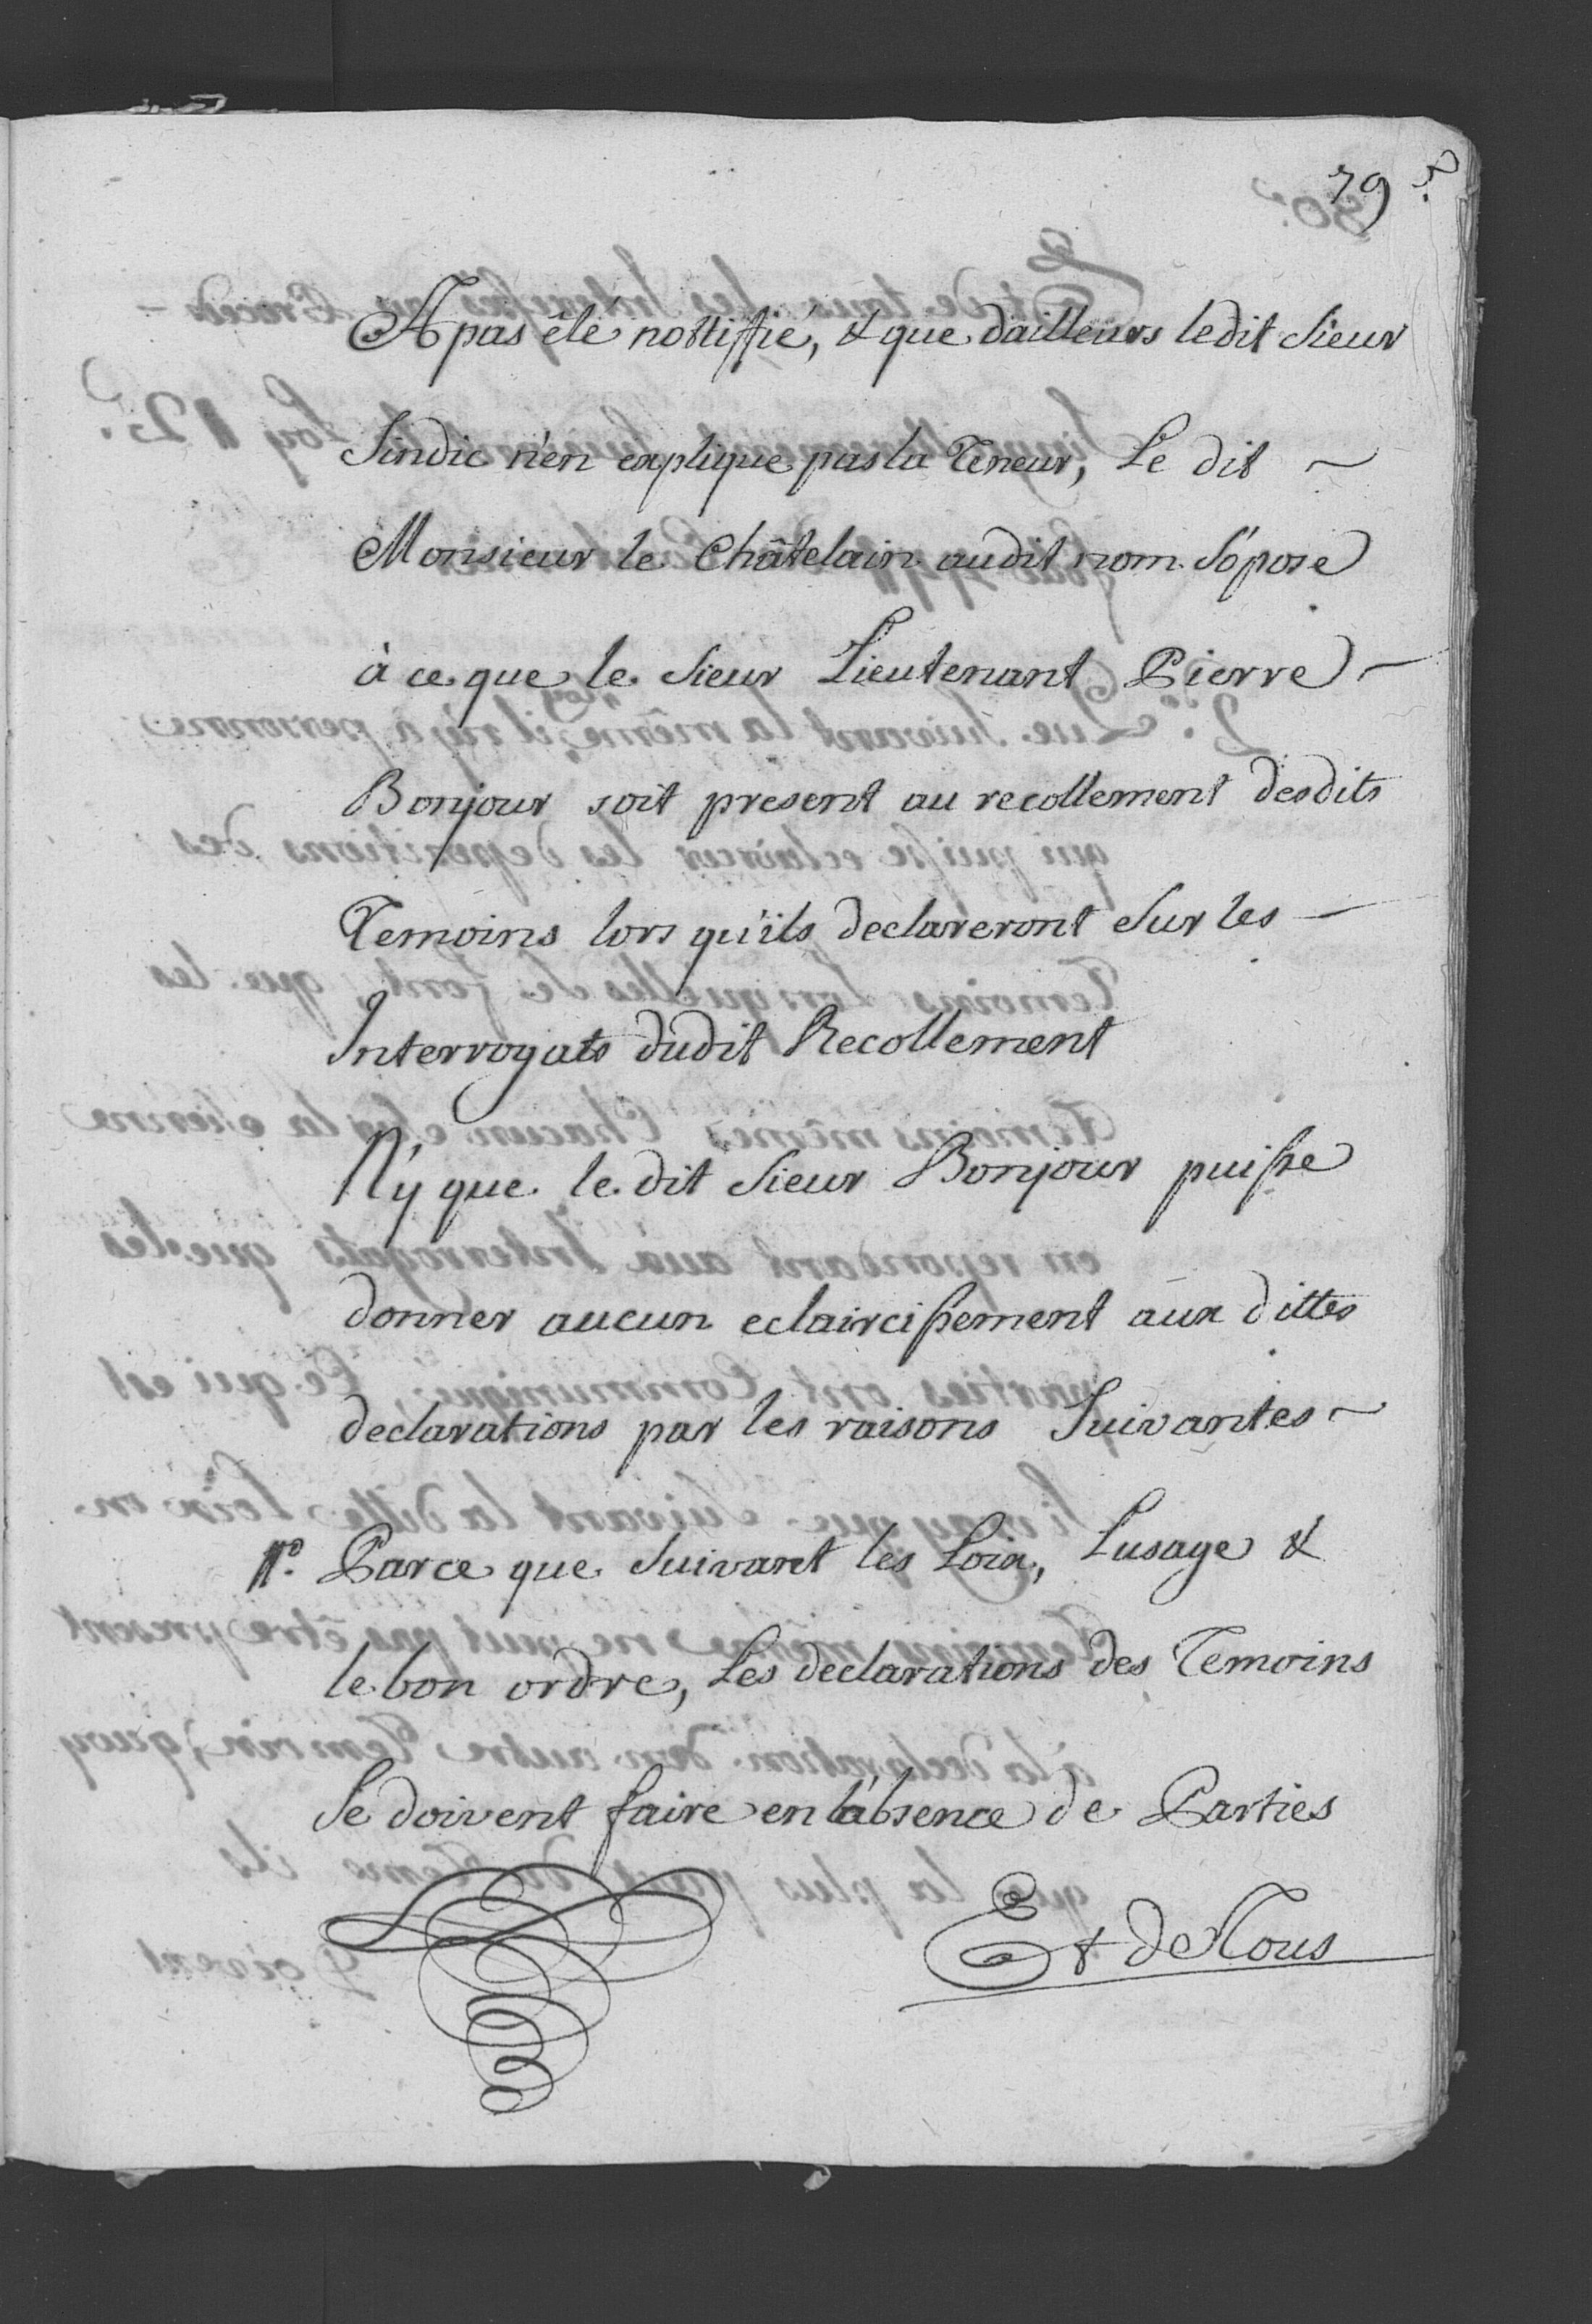 79.
A pas êté nottiffié, & que dailleurs ledit Sieur
Sindic n'en explique pas la Teneur, Le dit ~
Monsieur le Châtelain audit nom S'opose
à ce que le Sieur Lieutenant Pierre –
Bonjour soit present au recollement desdits
Temoins lors qu'ils declareront Sur les –
Interrogats dudit Recollement
N'y que le dit Sieur Bonjour puisse
donner aucun eclaircissement aux dittes
declarations par les raisons Suivantes ~
1°. Parce que Suivant les Loix, Lusage &
le bon ordre, Les declarations des Temoins
Se doivent faire en l'absence de Parties
Et de Tous